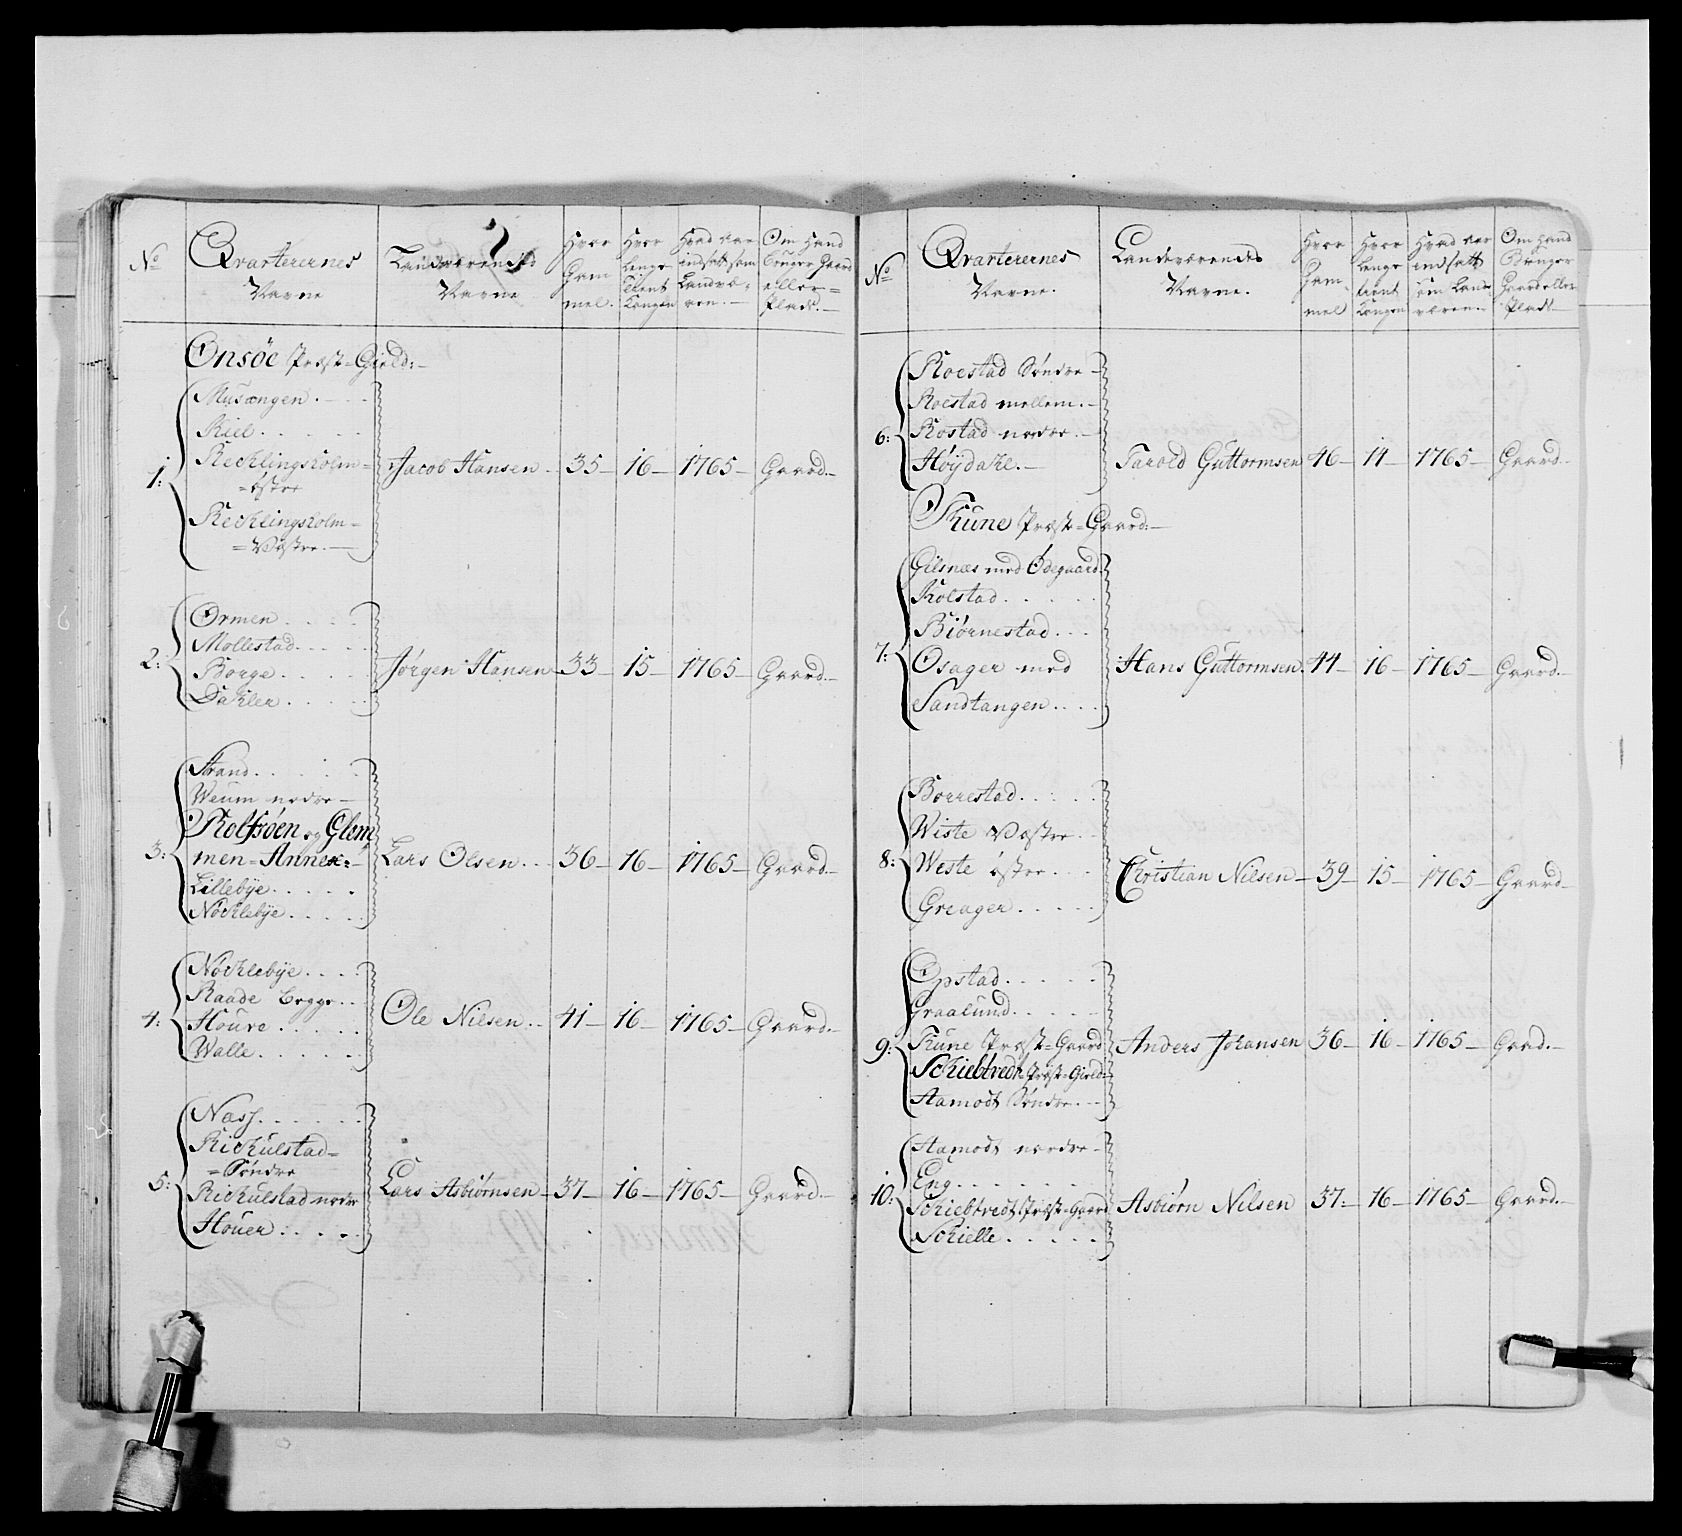 No
Qvarterernes
Navne
Landeværendes
Navne
Hvor
Gam
mel.
Hvor
lenge
tient
Kongen
Hvad aar
indsatt som
Landvæ-
ren.
Om Hand
bruger Gaard
eller
Plads.
Onsøe Præst-Gield:
1:
Musængen.
Kiil.
Kecklingholm
=østre
Kecklingholm
=Væstre.
Jacob Hansen 35 16 1765 Gaard.
2:
Ormen
Mollestad
Borge
Dahler
Jørgen Hansen 33 15 1765 Gaard.
3:
Strand
Weum nedre
Rolfsøen og Glem
men-Annex:
Lillebÿe
Nøcklebÿe
Lars Olsen 36 16 1765 Gaard.
4:
Nøcklebÿe
Raade begge
Houre
Walle
Ole Nilsen 41 16 1765 Gaard.
5:
Næss
Kickulstad
=Søndre
Kickulstad nordr
Houer
Lars Asbiørnsen 37 16 1765 Gaard.
No
Qvarterernes
Navne.
Landeværendes
Navne.
Hvor
Gam
mel
Hvor
lenge
tient
Kongen
Hvad aar
indsatt
som Land
væren.
Om Hand
Bruger
Gaard eller
Plads
6:
Roestad Søndre
Roestad mellem.
Rostad nordre.
Høÿdahl.
Tarold Guttormsen 46 14 1765 Gaard.
Thune Præst-Gaard:
7:
Gilsnæs med Ødegaard.
Kolstad
Biørnestad
Osager med
Sandtangen
Hans Guttormsen. 44 16 1765 Gaard.
8:
Borrestad
Wiste Væstre
Weste østre
Greager
Christian Nilsen 39 15 1765 Gaard.
9:
Opstad
Graalund
Thune Præst-Gaard
Schiebtvedt Præst-Gield:
Aamodt Søndre
Anders Johansen 36 16 1765 Gaad.
10:
Aamodt nordre
Eng
Schiebtvedt Præst-Gaard
Schielle
Asbiørn Nilsen 37 16 1765 Gaard.